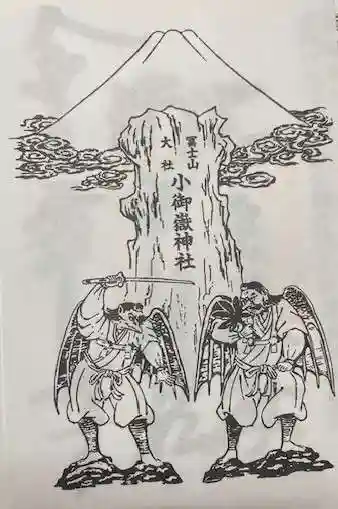 冨士山
大社
小御嶽神社